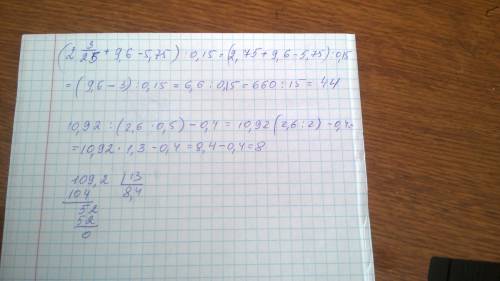 (2 3/25 + 9,6 - 5,75) : 0,15 = (2,75 + 9,6 - 5,75) : 0,15
= (9,6 - 3) : 0,15 = 6,6 : 0,15 = 660 : 15 = 44
10,92 : (2,6 · 0,5) - 0,4 = 10,92 (2,6 : 2) - 0,4=
= 10,92 : 1,3 - 0,4 = 8,4 - 0,4 = 8
109,2 | 13
104 8,4
52
52
0